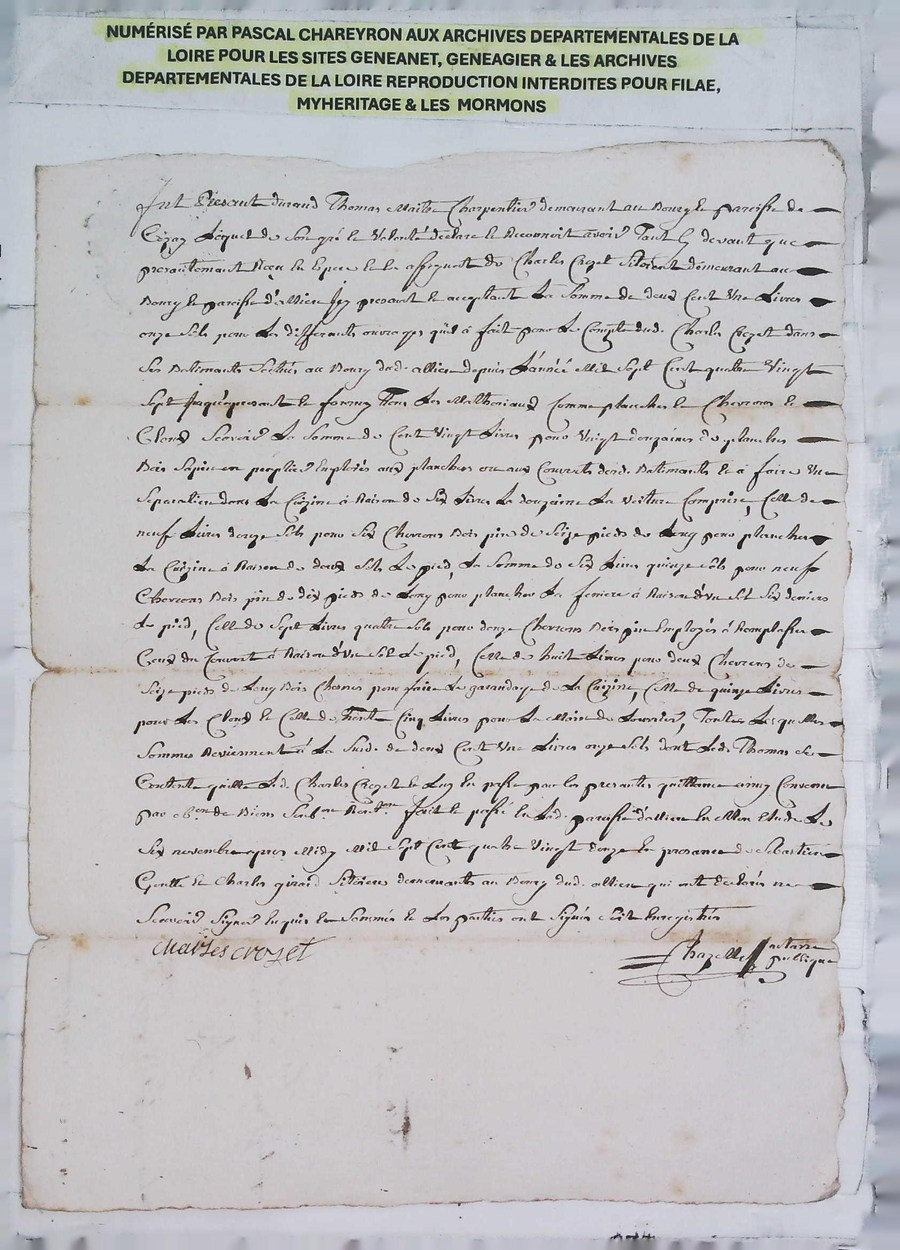 NUMÉRISÉ PAR PASCAL CHAREYRON AUX ARCHIVES DEPARTEMENTALES DE LA
LOIRE POUR LES SITES GENEANET, GENEAGIER & LES ARCHIVES
DEPARTEMENTALES DE LA LOIRE REPRODUCTION INTERDITES POUR FILAE,
MYHERITAGE & LES MORMONS
fut Présant durand Thomas Maitre Charpentier demeurant au Bourg le paroisse de
Lequel de Son gré le Volonté déclare le Reconnoit avoir Tant Cy devant que
presantement Recu en Espece de Charles Crozet demeurant au
Bourg le paroisse d'allieu Icy presant le acceptant La Somme de deux Cent Une Livres
onze Sols pour Les differants ouvrages quil a fait pour Le Compte dud. Charles Crozet dans
Ses Batimants Scitués au Bourg dud. allieu depuis L'année Mil Sept Cent quatre Vingt
Sept Jusqu'apresant le fourny Tous Les Mathériaux Comme planches le Chevrons le
Cloux Scavoir La Somme de Cent Vingt Livres pour Vingt douzaines de planches
Bois Sapin ou peuplié Employés aux planchers ou aux Couverts desd. Batimants le à faire Une
Separation dans La Cuizine à Raison de Six Livres La douzaine La Voiture Comprise, Celle de
neuf Livres douze Sols pour Six Chevrons Bois pin de Seize pieds de Long pour plancher
La Cuizine à Raison de deux Sols Le pied, La Somme de Six Livres quinze Sols pour neuf
Chevrons Bois pin de dix pieds de Long pour plancher La feniere à Raison d'un Sol Six deniers
Le pied, Celle de Sept Livres quatre Sols pour douze Chevrons Bois pin Employés à Remplasser
Ceux du Couvert à Raison d'un Sol Le pied, Celle de huit Livres pour deux Chevrons de
Seize pieds de Long Bois Chesnes pour faire Le garandage de La Cuizine, Celle de quinze Livres
pour Les Cloux le Celle de Trente Cinq Livres pour La Maind'œuvre, Toutes Lesquelles
Sommes Reviennent à La Susd. de deux Cent Une Livres onze Sols dont Led. Thomas Se
Contente quitte Led. Charles Crozet le Luy en passe par Les presantes quittance ainsy Convenu
par de Biens fait le passé en Lad. paroisse d'allieu en Mon Etude Le
Six novembre apres Midy Mil Sept Cent quatre Vingt douze en presance de Sebastien
Gentle le Charles girard demeurants au Bourg dud. allieu qui ont declarés ne
Scavoir Signer Enquis le Sommés le Les parties ont Signés Soit Enregistrés
charles crozet
Chazelle notaire
publique